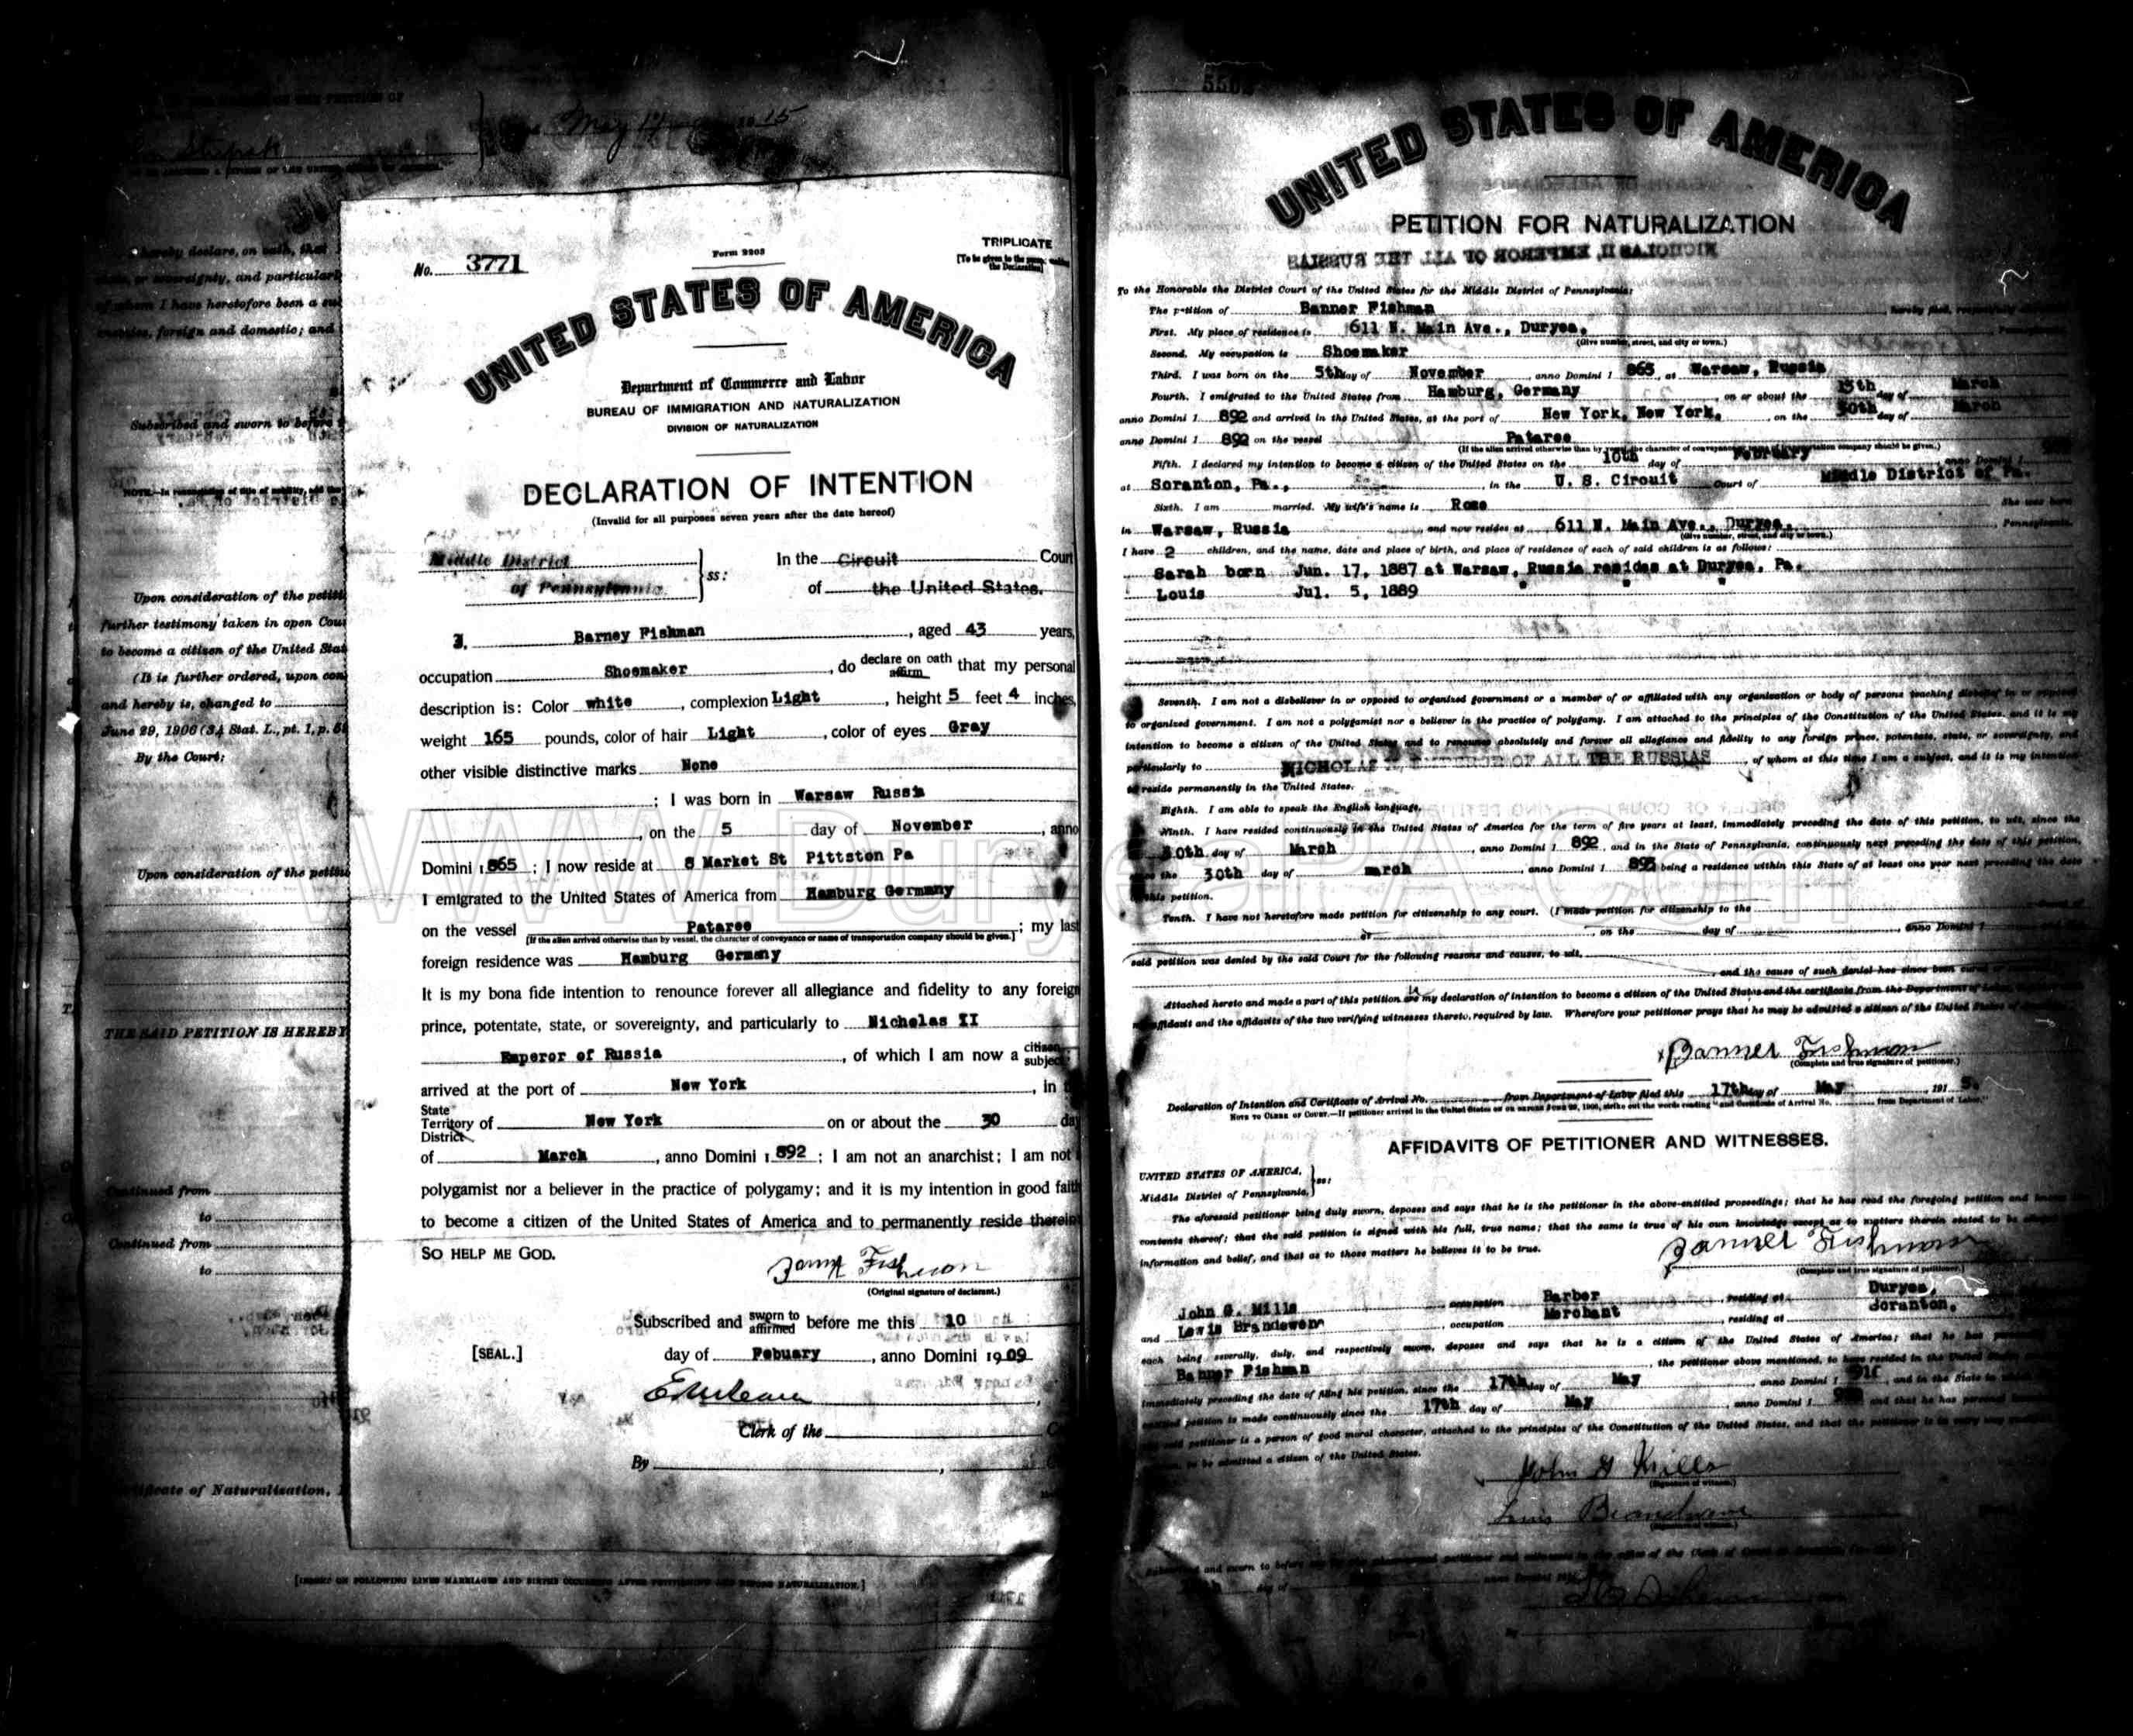 May 14 1915
Stupak
hereby declare, on oath, that
or sovereignty, and particularl
of whom I have heretofore been a sub
enemies, foreign and domestic; and
Subscribed and sworn to before
Upon consideration of the petiti
further testimony taken in open Cour
to become a citizen of the United Stat
(It is further ordered, upon con
and hereby is, changed to
June 29, 1906 (34 Stat. L., pt. 1, p.
By the Court:
Upon consideration of the petiti
THE SAID PETITION IS HEREBY
Continued from
to
Continued from
to
Certificate of Naturalization,
No. 3771
Form 2203
TRIPLICATE
UNITED STATES OF AMERICA
Department of Commerce and Labor
BUREAU OF IMMIGRATION AND NATURALIZATION
DIVISION OF NATURALIZATION
DECLARATION OF INTENTION
(Invalid for all purposes seven years after the date hereof)
Middle District
of Pennsylvania
ss:
In the Circuit Court
of the United States.
I, Barney Fishman, aged 43 years,
occupation Shoemaker, do declare on oath affirm that my personal
description is: Color white, complexion Light, height 5 feet 4 inches,
weight 165 pounds, color of hair Light, color of eyes Gray
other visible distinctive marks None
; I was born in Warsaw Russia
, on the 5 day of November, anno
Domini 1865; I now reside at 8 Market St Pittston Pa
I emigrated to the United States of America from Hamburg Germany
on the vessel Pataree; my last
[If the alien arrived otherwise than by vessel, the character of conveyance or name of transportation company should be given.]
foreign residence was Hamburg Germany
It is my bona fide intention to renounce forever all allegiance and fidelity to any foreign
prince, potentate, state, or sovereignty, and particularly to Nicholas II
Emperor of Russia, of which I am now a citizen subject;
arrived at the port of New York, in
State Territory District of New York on or about the 30 day
of March, anno Domini 1892; I am not an anarchist; I am not
polygamist nor a believer in the practice of polygamy; and it is my intention in good faith
to become a citizen of the United States of America and to permanently reside therein
SO HELP ME GOD.
(Original signature of declarant.)
Subscribed and sworn to affirmed before me this 10
[SEAL.]
day of Febuary, anno Domini 1909
Clerk of the
By
[INDEXES ON FOLLOWING LINES MARRIAGES AND BIRTHS OCCURRING AFTER PETITIONING AND BEFORE NATURALIZATION.]
UNITED STATES OF AMERICA
PETITION FOR NATURALIZATION
To the Honorable the District Court of the United States for the Middle District of Pennsylvania:
The petition of Banner Fishman, hereby filed, respectfully
First. My place of residence is 611 N. Main Ave., Duryea, Pennsylvania.
(Give number, street, and city or town.)
Second. My occupation is Shoemaker
Third. I was born on the 5th day of November, anno Domini 1865, at Warsaw, Russia
Fourth. I emigrated to the United States from Hamburg, Germany, on or about the 15th day of March
anno Domini 1892 and arrived in the United States, at the port of New York, New York, on the 30th day of March
anno Domini 1892 on the vessel Pataree
(If the alien arrived otherwise than by vessel, the character of conveyance or name of transportation company should be given.)
Fifth. I declared my intention to become a citizen of the United States on the 10th day of February anno Domini 1
at Scranton, Pa., in the U. S. Circuit Court of Middle District of Pa.
Sixth. I am married. My wife's name is Rose She was born
in Warsaw, Russia and now resides at 611 N. Main Ave., Duryea, Pennsylvania.
(Give number, street, and city or town.)
I have 2 children, and the name, date and place of birth, and place of residence of each of said children is as follows:
Sarah born Jun. 17, 1887 at Warsaw, Russia resides at Duryea, Pa.
Louis Jul. 5, 1889 " " "
Seventh. I am not a disbeliever in or opposed to organized government or a member of or affiliated with any organization or body of persons teaching disbelief in or opposed
to organized government. I am not a polygamist nor a believer in the practice of polygamy. I am attached to the principles of the Constitution of the United States, and it is my
intention to become a citizen of the United States and to renounce absolutely and forever all allegiance and fidelity to any foreign prince, potentate, state, or sovereignty, and
particularly to NICHOLAS II, EMPEROR OF ALL THE RUSSIAS, of whom at this time I am a subject, and it is my intention
to reside permanently in the United States.
Eighth. I am able to speak the English language.
Ninth. I have resided continuously in the United States of America for the term of five years at least, immediately preceding the date of this petition, to wit, since the
30th day of March, anno Domini 1892, and in the State of Pennsylvania, continuously next preceding the date of this petition,
since the 30th day of march, anno Domini 1893 being a residence within this State of at least one year next preceding the date
of this petition.
Tenth. I have not heretofore made petition for citizenship to any court. (I made petition for citizenship to the
at, on the day of, anno Domini 1
said petition was denied by the said Court for the following reasons and causes, to wit,
, and the cause of such denial has since been cured
Attached hereto and made a part of this petition are my declaration of intention to become a citizen of the United States and the certificate from the Department of Labor,
affidavit and the affidavits of the two verifying witnesses thereto, required by law. Wherefore your petitioner prays that he may be admitted a citizen of the United States of
Banner Fishman
(Complete and true signature of petitioner.)
Declaration of Intention and Certificate of Arrival No. from Department of Labor filed this 17th day of May, 1915.
AFFIDAVITS OF PETITIONER AND WITNESSES.
UNITED STATES OF AMERICA,
Middle District of Pennsylvania,
ss:
The aforesaid petitioner being duly sworn, deposes and says that he is the petitioner in the above-entitled proceedings; that he has read the foregoing petition and knows
contents thereof; that the said petition is signed with his full, true name; that the same is true of his own knowledge except as to matters therein stated to be alleged
information and belief, and that as to those matters he believes it to be true.
Banner Fishman
(Complete and true signature of petitioner.)
John G. Mills occupation Barber, residing at Duryea,
and Lewis Brandewene, occupation Merchant, residing at Scranton,
each being severally, duly, and respectively sworn, deposes and says that he is a citizen of the United States of America; that he has
Banner Fishman, the petitioner above mentioned, to have resided in the United States
immediately preceding the date of filing his petition, since the 17th day of May, anno Domini 1, and in the State in which
entitled petition is made continuously since the 17th day of May, anno Domini 1 and that he has personal
said petitioner is a person of good moral character, attached to the principles of the Constitution of the United States, and that the petitioner is in every way
to be admitted a citizen of the United States.
John G Mills
(Signature of witness.)
(Signature of witness.)
www.DuryeaPA.com